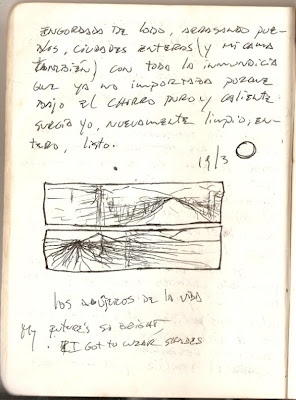 ENGORDADA DE LODO, ARRASANDO PUE-
BLOS, CIUDADES ENTERAS (Y MI CAMA
TAMBIÉN) CON TODA LA INMUNDICIA
QUE YA NO IMPORTABA PORQUE
BAJO EL CHORRO PURO Y CALIENTE
SURGÍA YO, NUEVAMENTE LIMPIO, EN-
TERO, LISTO.
19/3
LOS AGUJEROS DE LA VIDA
My FUTURE'S SO BRIGHT
I GOT TO WEAR SHADES